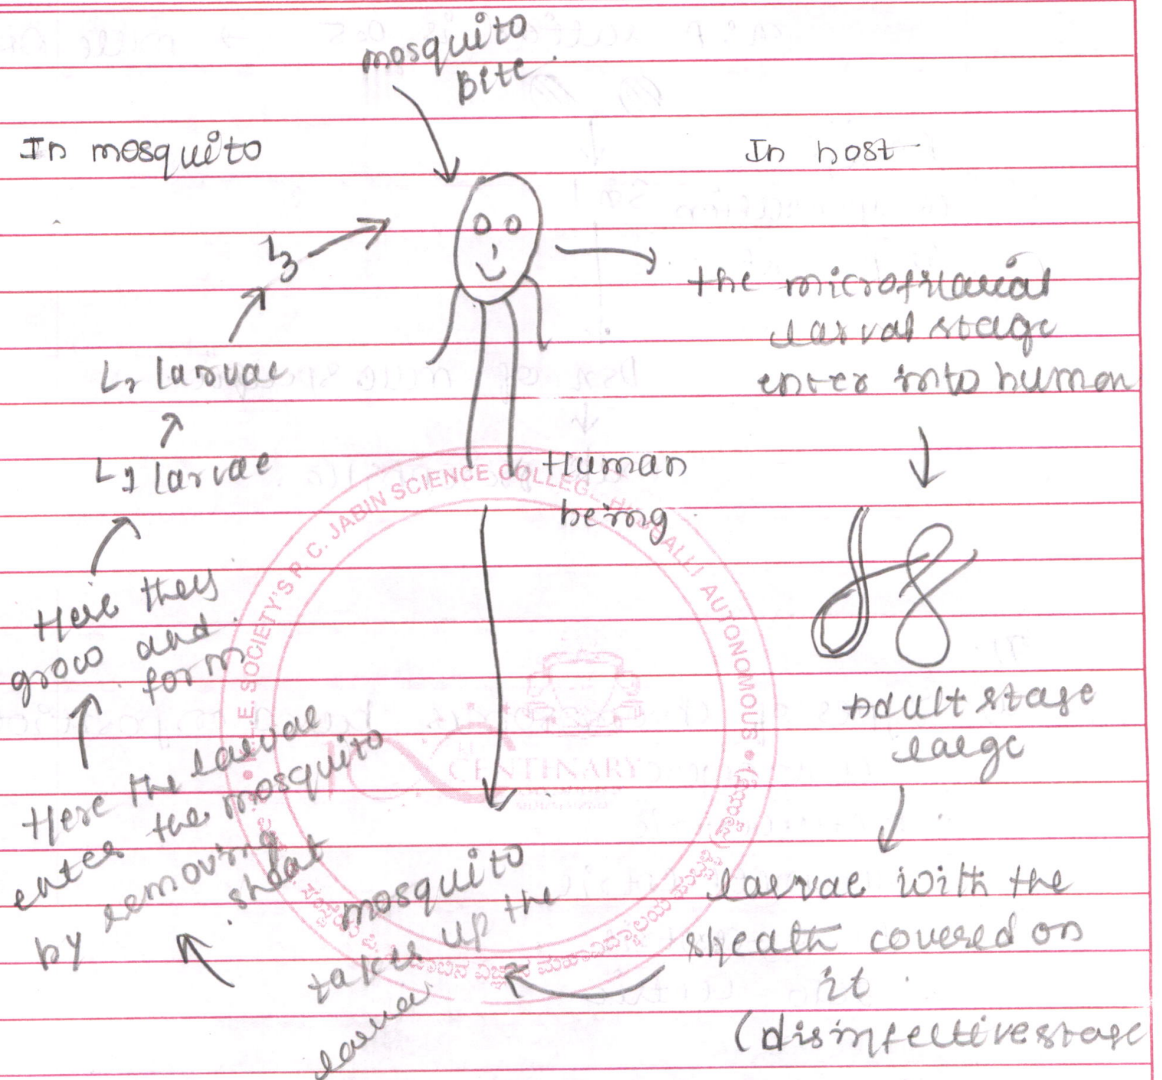 mosquito
Bite.
In mosquito
In host
L3
the microfilarial
larval stage
enter into human
L2 larvae
L1 larvae
Human
being
Here they
grow and
form
Adult stage
large
Here the larvae
enter the mosquito
by removing
sheat
mosquito
takes up the
larvae.
larvae with the
sheath covered on
it
(disinfective stage
SOCIETY'S P. C. JABIN SCIENCE COLLEGE
AUTONOMOUS
CENTINARY